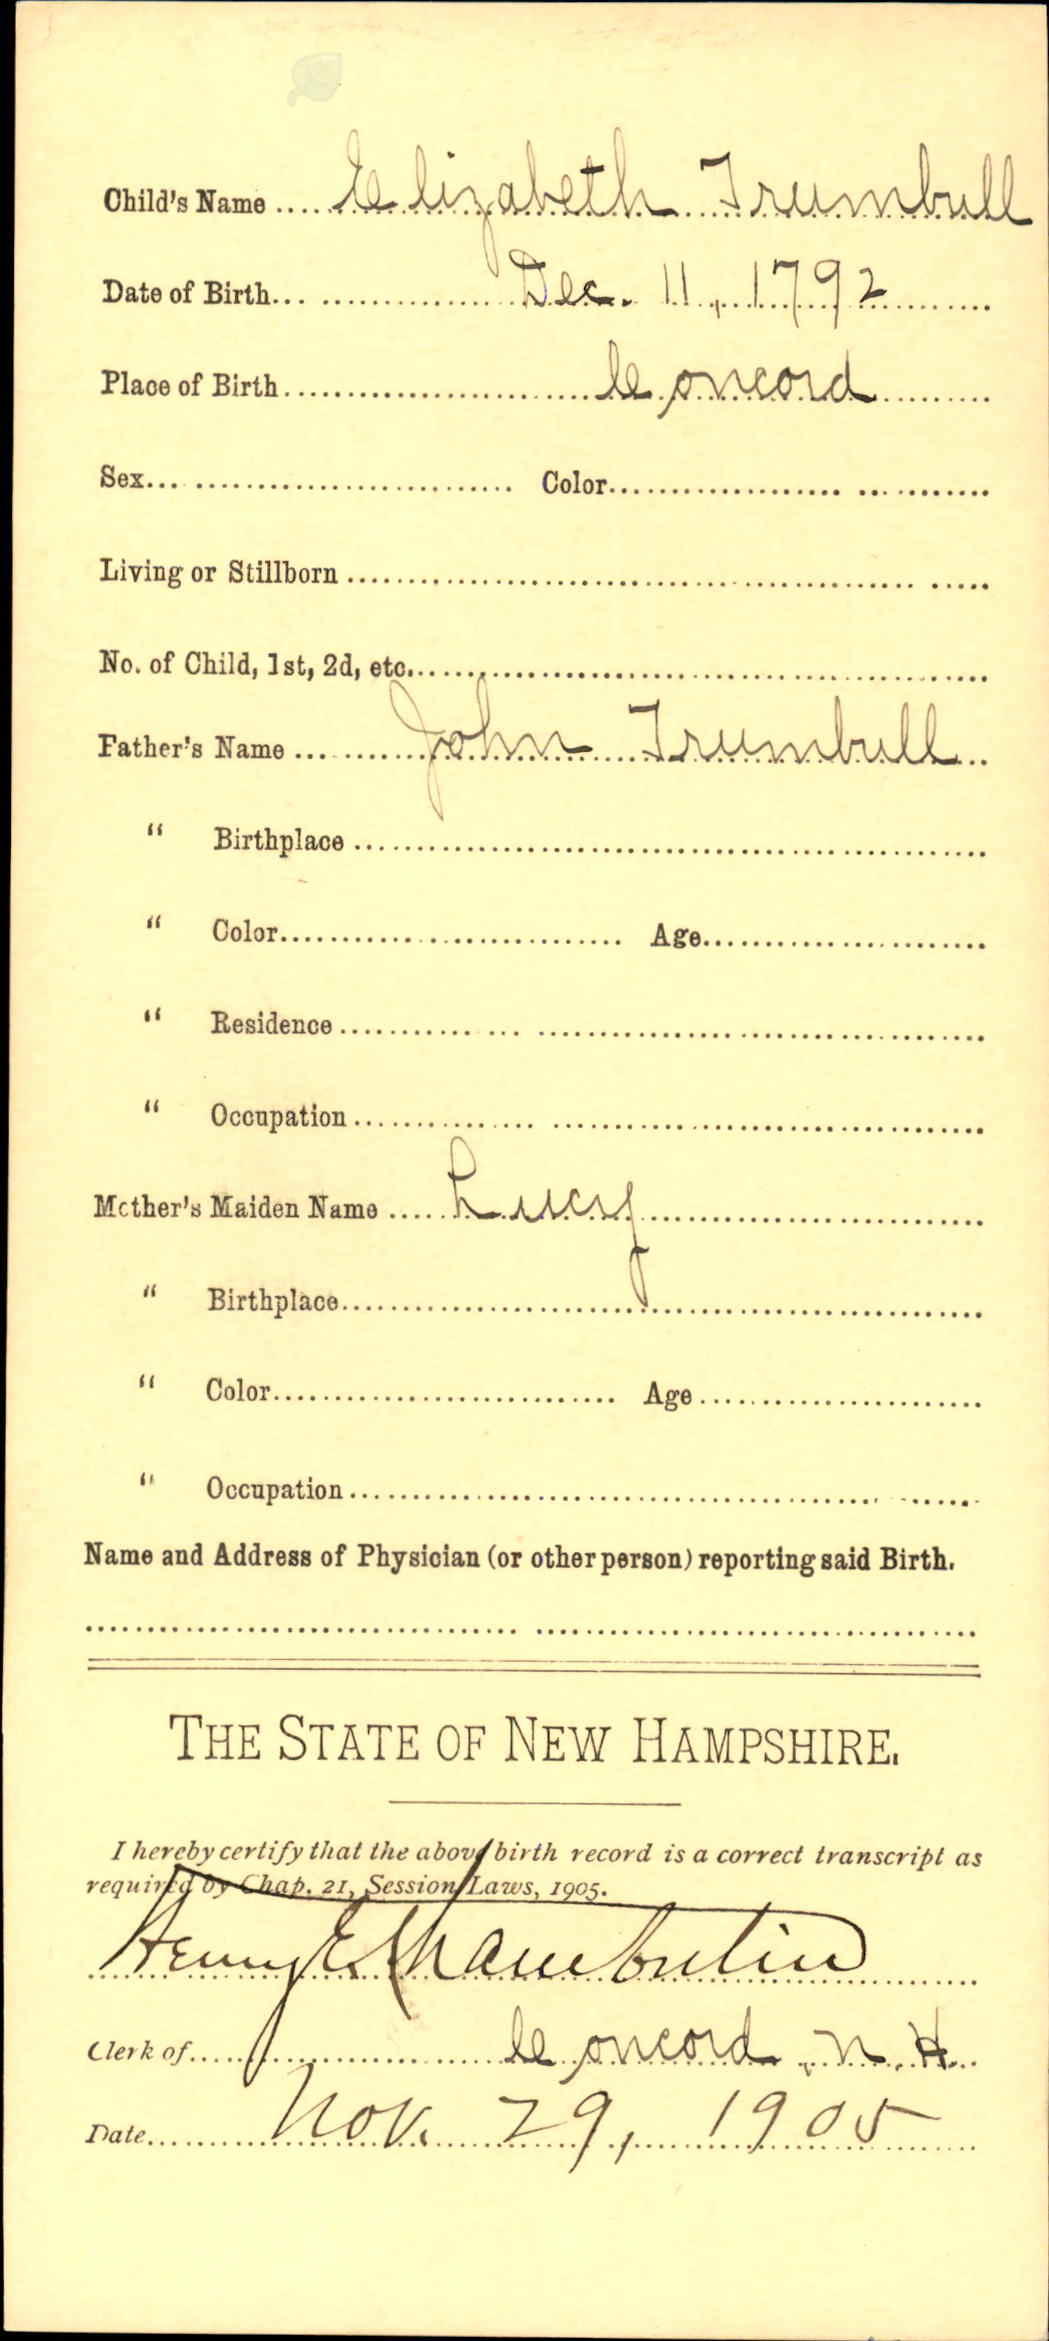 Child's Name .... Elizabeth Trumbull
Date of Birth... Dec. 11, 1792
Place of Birth... Concord
Sex... Color...
Living or Stillborn ...
No. of Child, 1st, 2d, etc....
Father's Name ... John Trumbull
" Birthplace ...
" Color... Age...
" Residence ...
" Occupation ...
Mother's Maiden Name ... Lucy
" Birthplace...
" Color... Age...
" Occupation ...
Name and Address of Physician (or other person) reporting said Birth.
THE STATE OF NEW HAMPSHIRE.
I hereby certify that the above birth record is a correct transcript as
required by Chap. 21, Session Laws, 1905.
Henry E. Chamberlin
Clerk of... Concord, N. H.
Date... Nov. 29, 1905